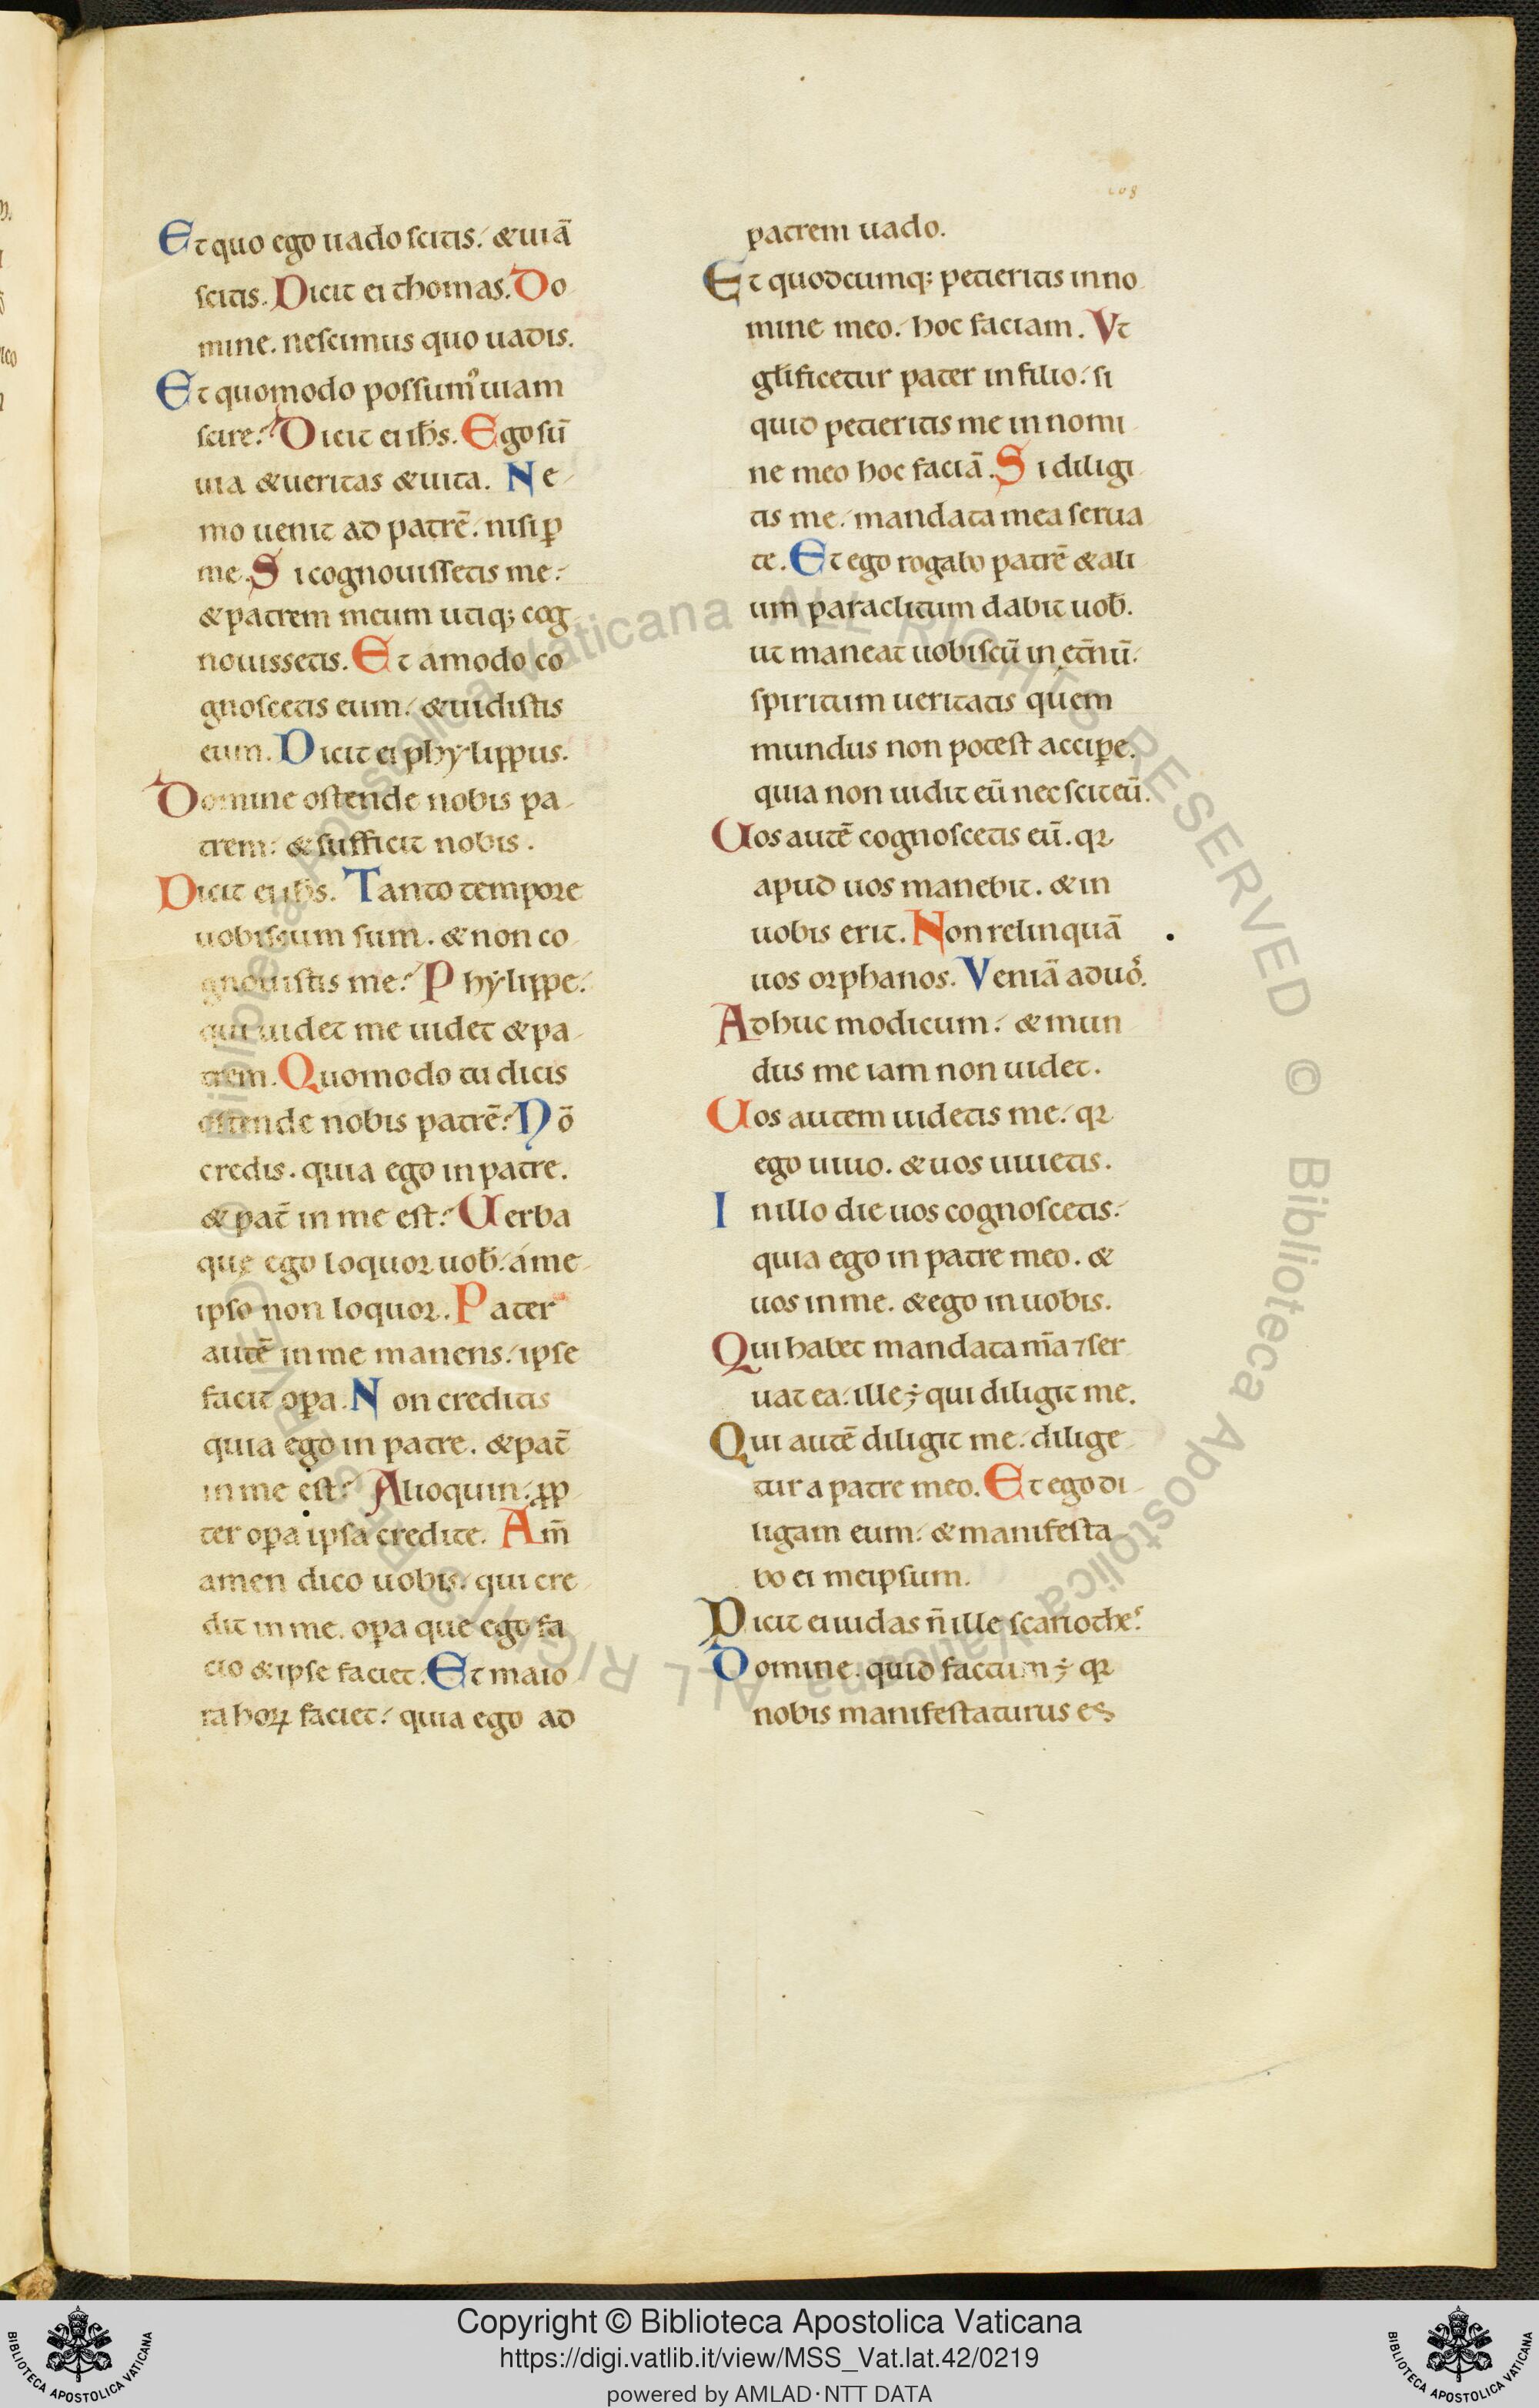 Et quo ego uado scitis. &uiā
scitis. Dicit ei thomas. Do
mine. nescimus quo uadis.
Et quomodo possumꝰ uiam
scire? Dicit ei ihs̄. Ego sū
uia &ueritas &uita. Ne
mo uenit ad patrē. nisi ꝑ
me. Si cognouissetis me.
&patrem meum utiq; cog
nouissetis. Et amodo co
gnoscetis eum. &uidistis
eum. Dicit ei phylippus.
Domine ostende nobis pa
trem. &sufficit nobis.
Dicit ei ihs̄. Tanto tempore
uobiscum sum. &non co
gnouistis me? Phylippe.
qui uidet me uidet &pa
trem. Quomodo tu dicis
ostende nobis patrē? Nō
credis. quia ego in patre.
&pat̄ in me est? Uerba
que ego loquor uob̄. ame
ipso non loquor. Pater
autē in me manens. ipse
facit oꝑa. Non creditis
quia ego in patre. &pat̄
in me est? Alioquin. ꝓp
ter oꝑa ipsa credite. Am̄
amen dico uobis. qui cre
dit in me. oꝑa que ego fa
cio &ipse faciet. Et maio
ra hoꝝ faciet. quia ego ad
patrem uado.
Et quodcumq; petieritis in no
mine meo. hoc faciam. Vt
gl̄ificetur pater in filio. si
quid petieritis me in nomi
ne meo hoc faciā. Si diligi
tis me. mandata mea serua
te. Et ego rogabo patrē &ali
um paraclitum dabit uob̄.
ut maneat uobiscū in et̄nū.
spiritum ueritatis quem
mundus non potest acciꝑe.
quia non uidit eū nec scit eū.
Uos autē cognoscetis eū. qꝛ
apud uos manebit. &in
uobis erit. Non relinquā
uos orphanos. Veniā ad uos.
Adhuc modicum. &mun
dus me iam non uidet.
Uos autem uidetis me. qꝛ
ego uiuo. &uos uiuetis.
In illo die uos cognoscetis.
quia ego in patre meo. &
uos in me. &ego in uobis.
Qui habet mandata m̄a ⁊ ser
uat ea. ille ÷ qui diligit me.
Qui autē diligit me. dilige
tur a patre meo. Et ego di
ligam eum. &manifesta
bo ei meipsum.
Dicit ei iudas n̄ ille scariothes.
Domine. quid factum ÷ qꝛ
nobis manifestaturus es
Copyright © Biblioteca Apostolica Vaticana
https://digi.vatlib.it/view/MSS_Vat.lat.42/0219
powered by AMLAD·NTT DATA
BIBLIOTECA APOSTOLICA VATICANA
BIBLIOTECA APOSTOLICA VATICANA